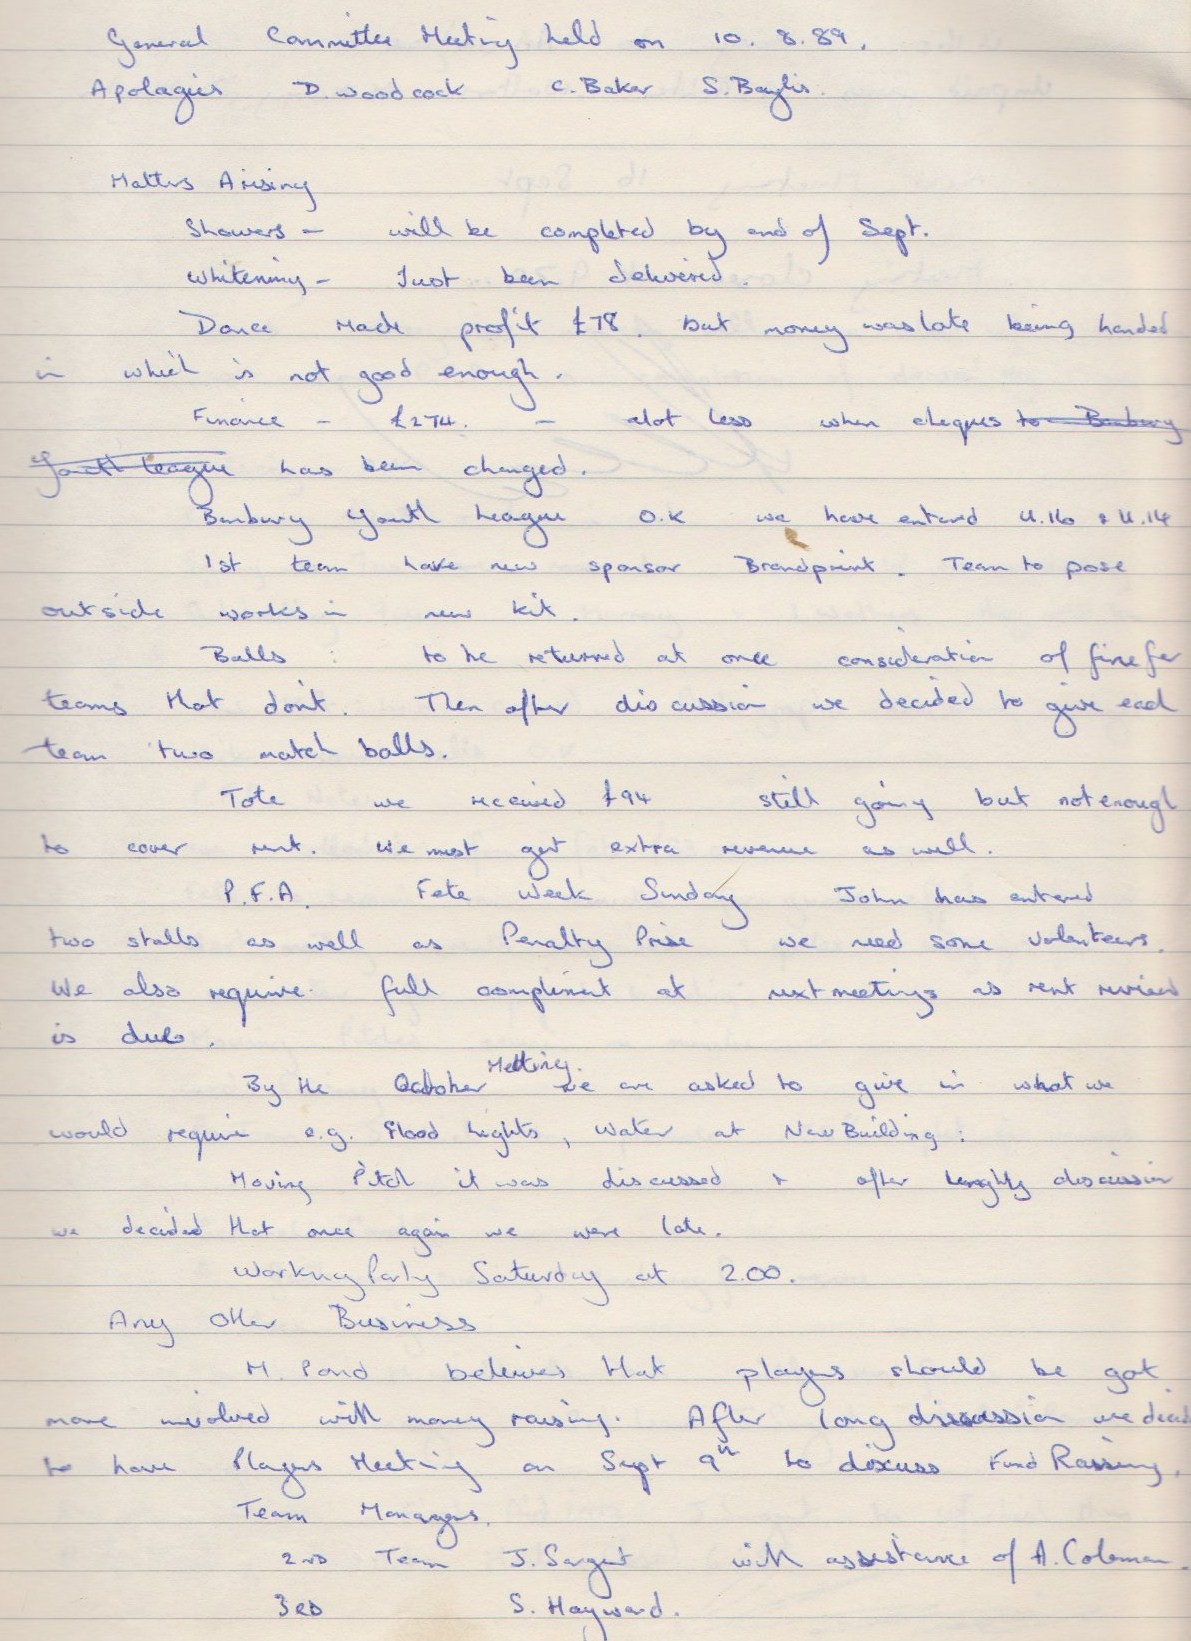 General Committee Meeting held on 10.8.89.
Apolagies D. Woodcock C. Baker S. Baylis.
Matters Arising
Showers - will be completed by end of Sept.
Whitening - Just been delivered.
Dance made profit £78. but money was late being handed
in which is not good enough.
Finance - £274. - alot less when cheques to Banbury
Youth League has been changed.
Banbury Youth League O.K we have entered U.16 & U.14
1st team have new sponsor Brandprint. Team to pose
outside works in new kit.
Balls : to be returned at once consideration of fine for
teams that don't. Then after discussion we decided to give each
team two match balls.
Tote we received £94 still going but not enough
to cover rent. We must get extra revenue as well.
P.F.A. Fete Week Sunday John has entered
two stalls as well as Penalty Prise we need some volunteers.
We also require full compliment at next meeting as rent review
is due.
By the October Meeting we are asked to give in what we
would require e.g. Flood Lights, Water at New Building.
Moving Pitch it was discussed & after lenghty discussion
we decided that once again we were late.
Working Party Saturday at 2.00.
Any Other Business
M. Pond believes that players should be got
more involved with money raising. After long discussion we decid
to have Players Meeting on Sept 9th to discuss Fund Raising.
Team Managers.
2nd Team J. Sargent with assistance of A. Coleman.
3rd S. Hayward.